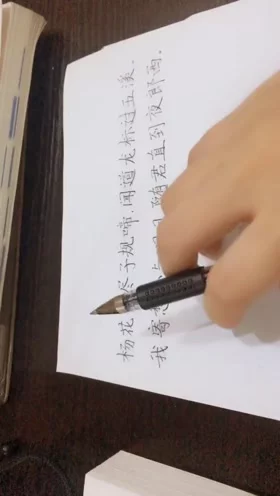 杨花尽子规啼,闻道龙标过五溪.
我寄 随君直到夜郎西.